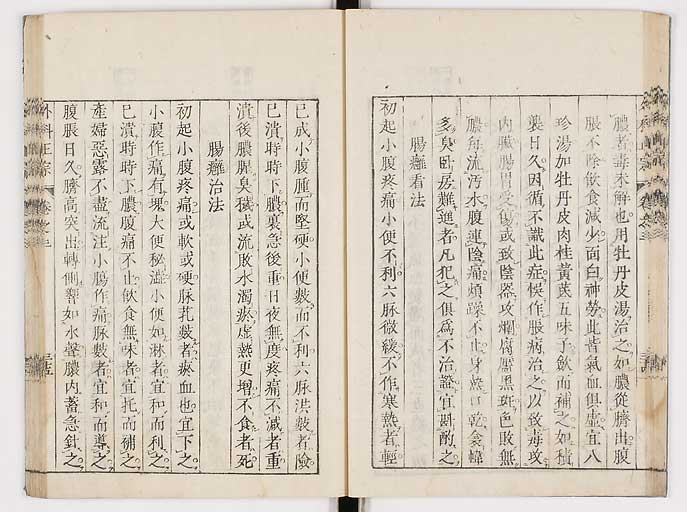 膿者毒未解也用牡丹皮湯治之如膿從臍出腹
脹不除飲食減少面白神勞此皆氣血俱虛宜八
珍湯加牡丹皮肉桂黃芪五味子斂而補之如積
襲日久因循不識此症悞作脹病治之以致毒攻
內臟腸胃受傷或致陰器攻爛腐靨黑斑色敗無
膿每流汚水腹連陰痛煩躁不止身熱口乾衾幃
多臭臥房難進者凡犯之俱爲不治證宜斟酌之
腸癰看法
初起小腹疼痛小便不利六脉微緩不作寒熱者輕
已成小腹腫而堅硬小便數而不利六脉洪數者險
已潰時時下膿裏急後重日夜無度疼痛不減者重
潰後膿腥臭穢或流敗水濁瘀虛熱更增不食者死
腸癰治法
初起小腹疼痛或軟或硬脉芤數者瘀血也宜下之
小腹作痛有塊大便秘澁小便如淋者宜和而利之
已潰時時下膿腹痛不止飲食無味者宜托而補之
產婦惡露不盡流注小腸作痛脉數者宜和而導之
腹脹日久臍高突出轉側響如水聲膿內蓄急針之
外科正宗 卷之三